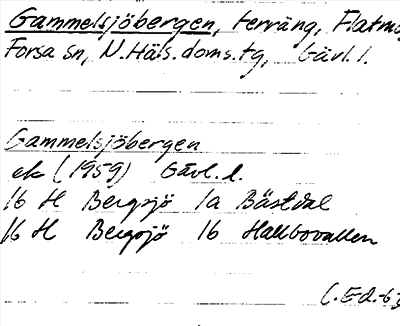 Gammelsjöbergen, terräng, Flatmo
Forsa sn, N.Häls.doms.tg, Gävl.l.
Gammelsjöbergen
ek (1959) Gävl.l.
16 H Bergsjö 1a Bästdal
16 H Bergsjö 1b Hallbovallen
C.Ed.-63